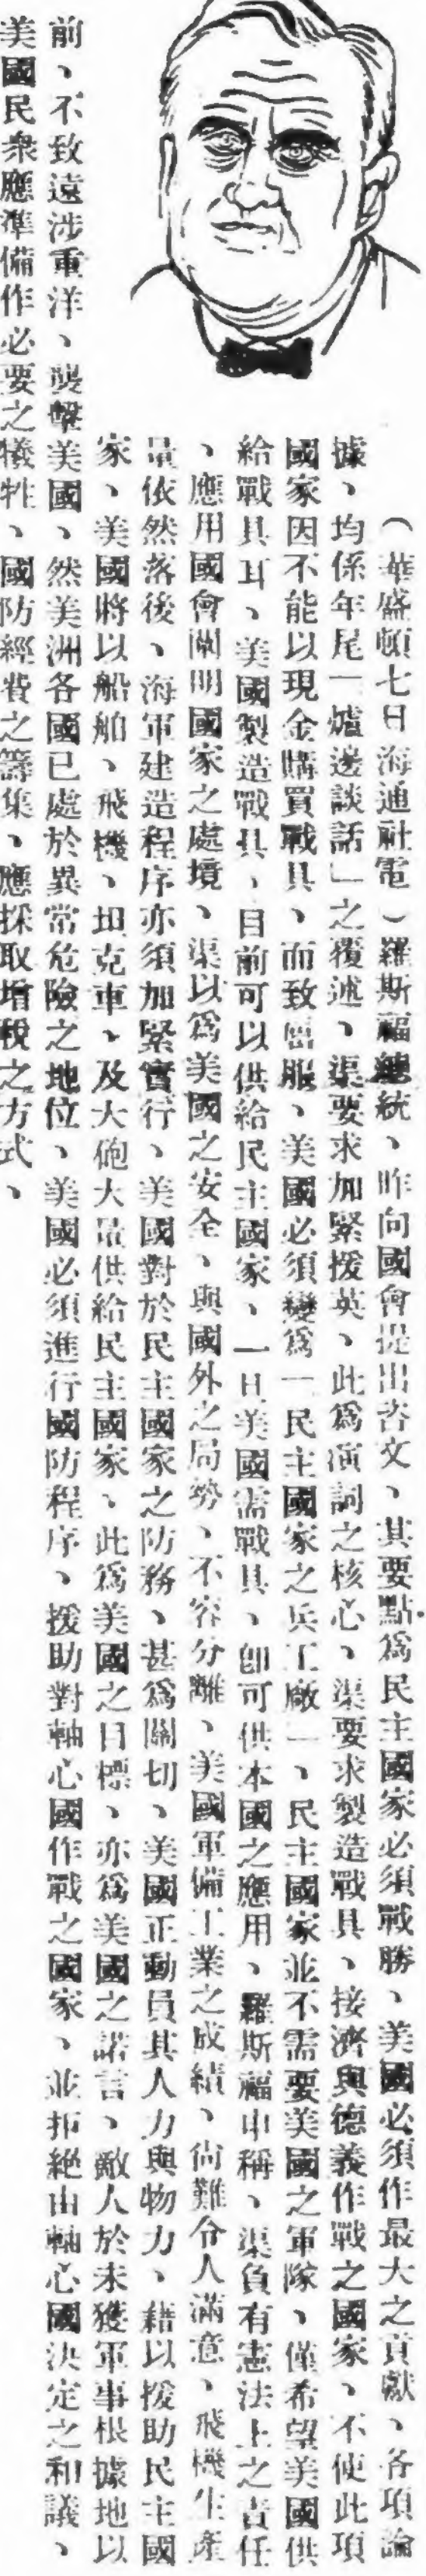 （華盛頓七日海通社電）羅斯福總統、昨向國會提出咨文、其要點爲民主國家必須戰勝、美國必須作最大之貢獻、各項論
據、均係年尾「爐邊談話」之覆述、渠要求加緊援英、此爲演詞之核心、渠要求製造戰具、接濟與德義作戰之國家、不使此項
國家因不能以現金購買戰具、而致屈服、美國必須變爲「民主國家之兵工廠」、民主國家並不需要美國之軍隊、僅希望美國供
給戰具耳、美國製造戰具、目前可以供給民主國家、一旦美國需戰具、卽可供本國之應用、羅斯福申稱、渠負有憲法上之責任
、應用國會闡明國家之處境、渠以爲美國之安全、與國外之局勢、不容分離、美國軍備工業之成績、尙難令人滿意、飛機生產
量依然落後、海軍建造程序亦須加緊實行、美國對於民主國家之防務、甚爲關切、美國正動員其人力與物力、藉以援助民主國
家、美國將以船舶、飛機、坦克車、及大砲大量供給民主國家、此爲美國之目標、亦爲美國之諾言、敵人於未獲軍事根據地以
前、不致遠涉重洋、襲擊美國、然美洲各國已處於異常危險之地位、美國必須進行國防程序、援助對軸心國作戰之國家、並拒絕由軸心國決定之和議、
美國民衆應準備作必要之犧牲、國防經費之籌集、應採取增稅之方式、